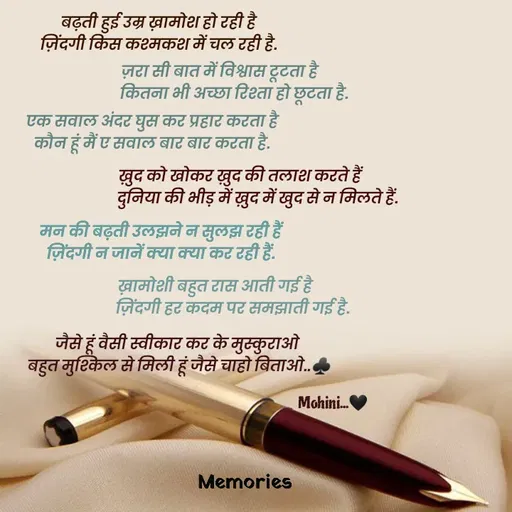 बढ़ती हुई उम्र ख़ामोश हो रही है
ज़िंदगी किस कश्मकश में चल रही है.
ज़रा सी बात में विश्वास टूटता है
कितना भी अच्छा रिश्ता हो छूटता है.
एक सवाल अंदर घुस कर प्रहार करता है
कौन हूं मैं ए सवाल बार बार करता है.
ख़ुद को खोकर ख़ुद की तलाश करते हैं
दुनिया की भीड़ में ख़ुद में खुद से न मिलते हैं.
मन की बढ़ती उलझने न सुलझ रही हैं
ज़िंदगी न जानें क्या क्या कर रही हैं.
ख़ामोशी बहुत रास आती गई है
ज़िंदगी हर कदम पर समझाती गई है.
जैसे हूं वैसी स्वीकार कर के मुस्कुराओ
बहुत मुश्किल से मिली हूं जैसे चाहो बिताओ..♣
Mohini...🖤
Memories